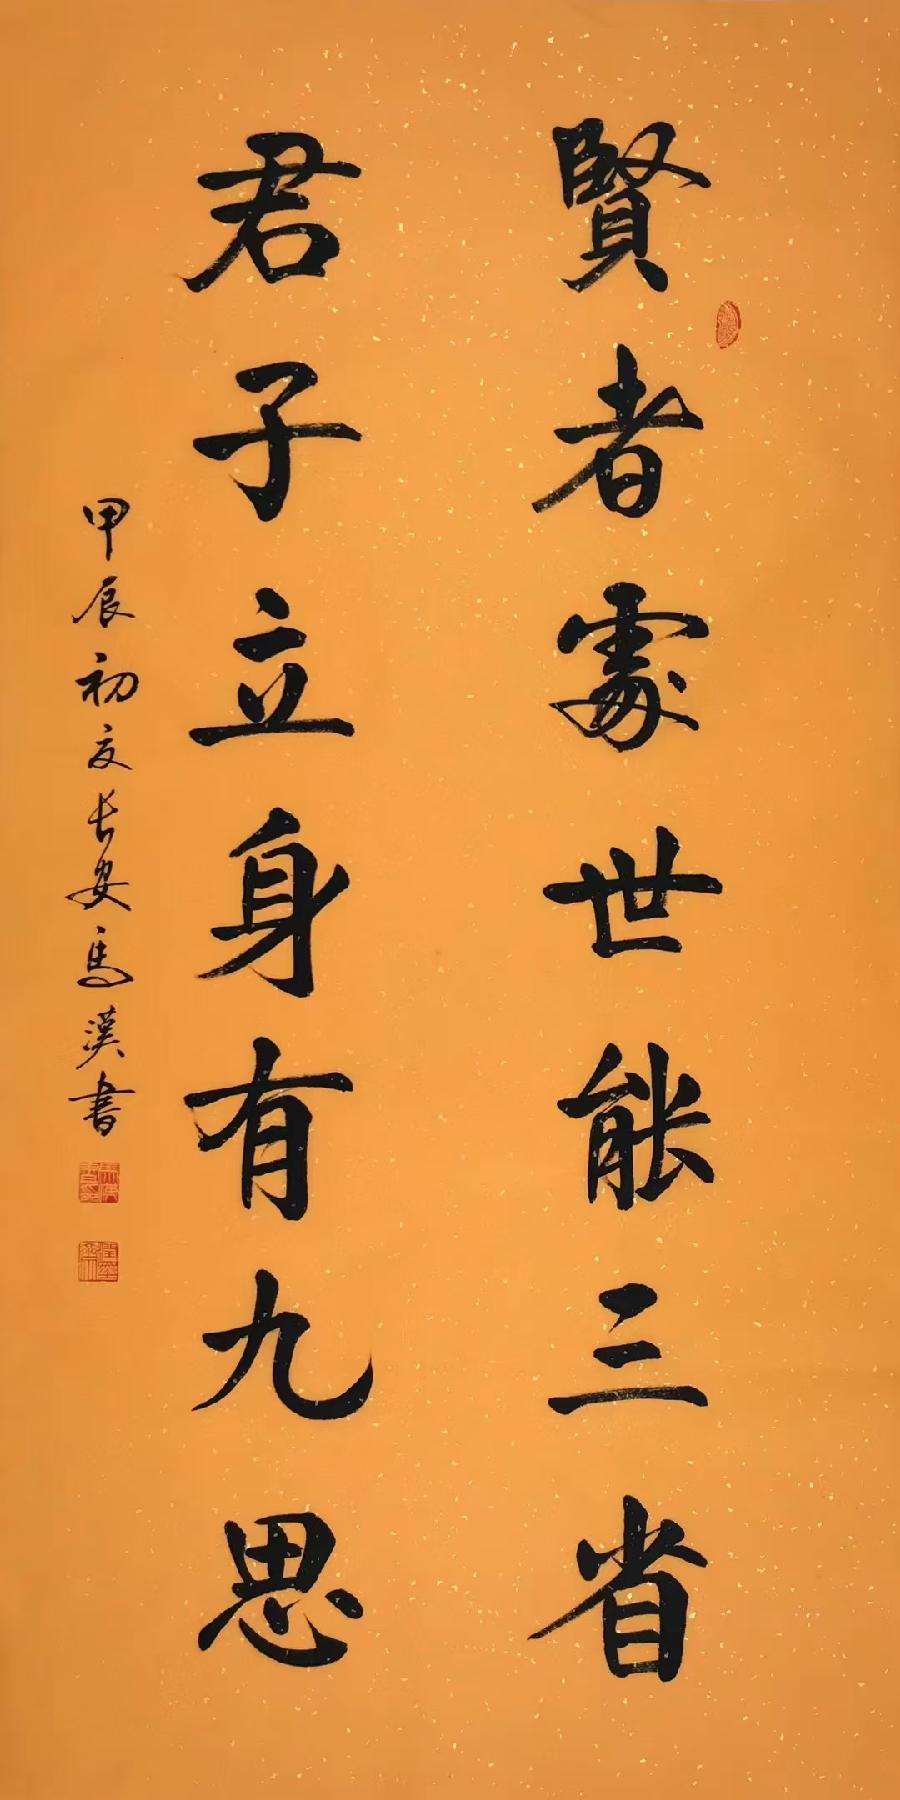 賢者處世能三省
君子立身有九思
甲辰初夏長安馬漢書